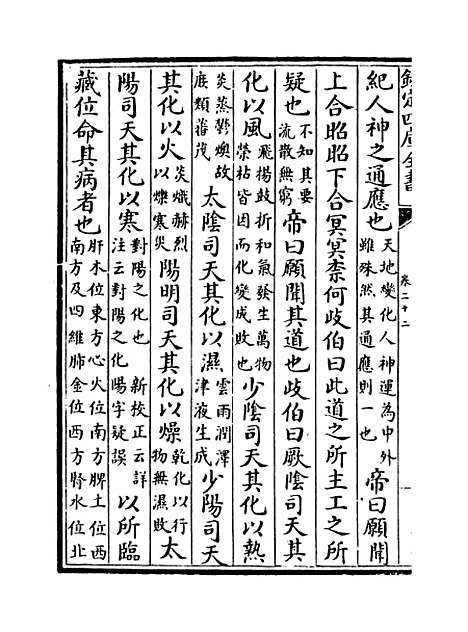 欽定四庫全書
卷二十二
紀人神之通應也天地變化人神運為中外雖殊然其通應則一也帝曰願聞
上合昭昭下合冥冥柰何歧伯曰此道之所主工之所
疑也不知其要流散無窮帝曰願聞其道也歧伯曰厥陰司天其
化以風飛揚鼓折和氣發生萬物榮枯皆因而化變成敗也少陰司天其化以熱
炎蒸鬱燠故庶類蕃茂太陰司天其化以濕雲雨潤澤津液生成少陽司天
其化以火炎熾赫烈以爍寒災陽明司天其化以燥乾化以行物無濕敗太
陽司天其化以寒對陽之化也新校正云詳注云對陽之化陽字疑誤以所臨
藏位命其病者也肝木位東方心火位南方脾土位西南方及四維肺金位西方腎水位北